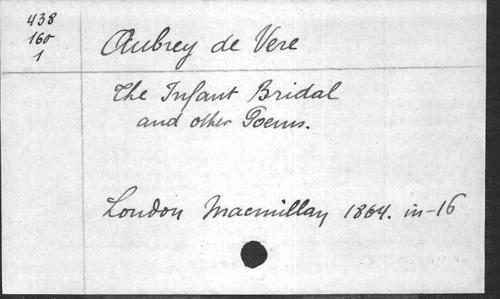 438
160
1
Aubrey de Vere
The Infant Bridal
and other Poems.
London Macmillan 1864. in-16